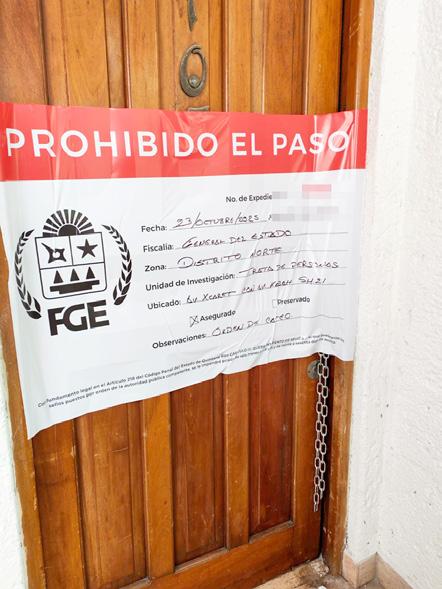 PROHIBIDO EL PASO
No. de Expedie
Fecha: 23/OCTUBRE/2025
Fiscalía: GENERAL DEL ESTADO
Zona: DISTRITO NORTE
Unidad de Investigación: TRATA DE PERSONAS
Ubicado: AV XCARET CON SM21
Asegurado Preservado
Observaciones: ORDEN DE CATEO
FGE
Con fundamento legal en el Artículo 218 del Código Penal del Estado de Quintana Roo
sellos puestos por orden de la autoridad pública competente, se le impondrá